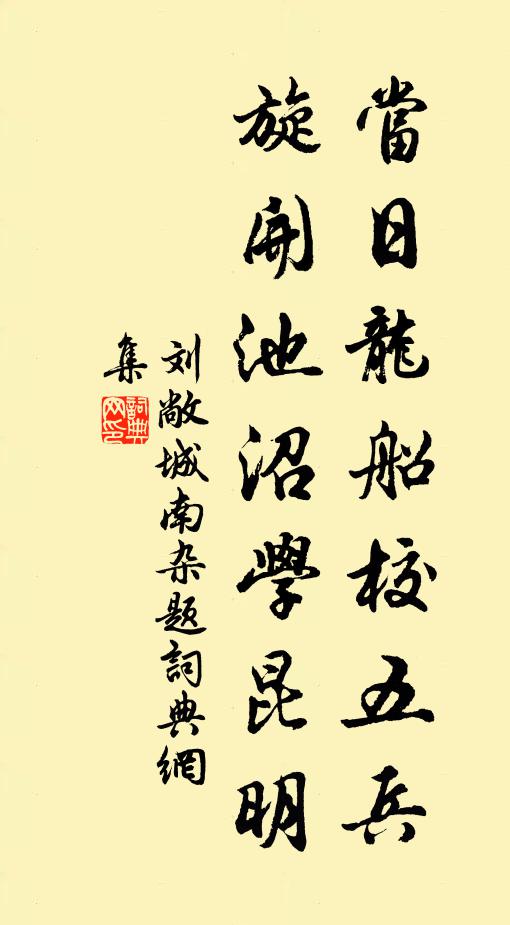 當日龍船校五兵
旋開池沼學昆明
刘敞城南杂题詞典網
集
詞典
网印